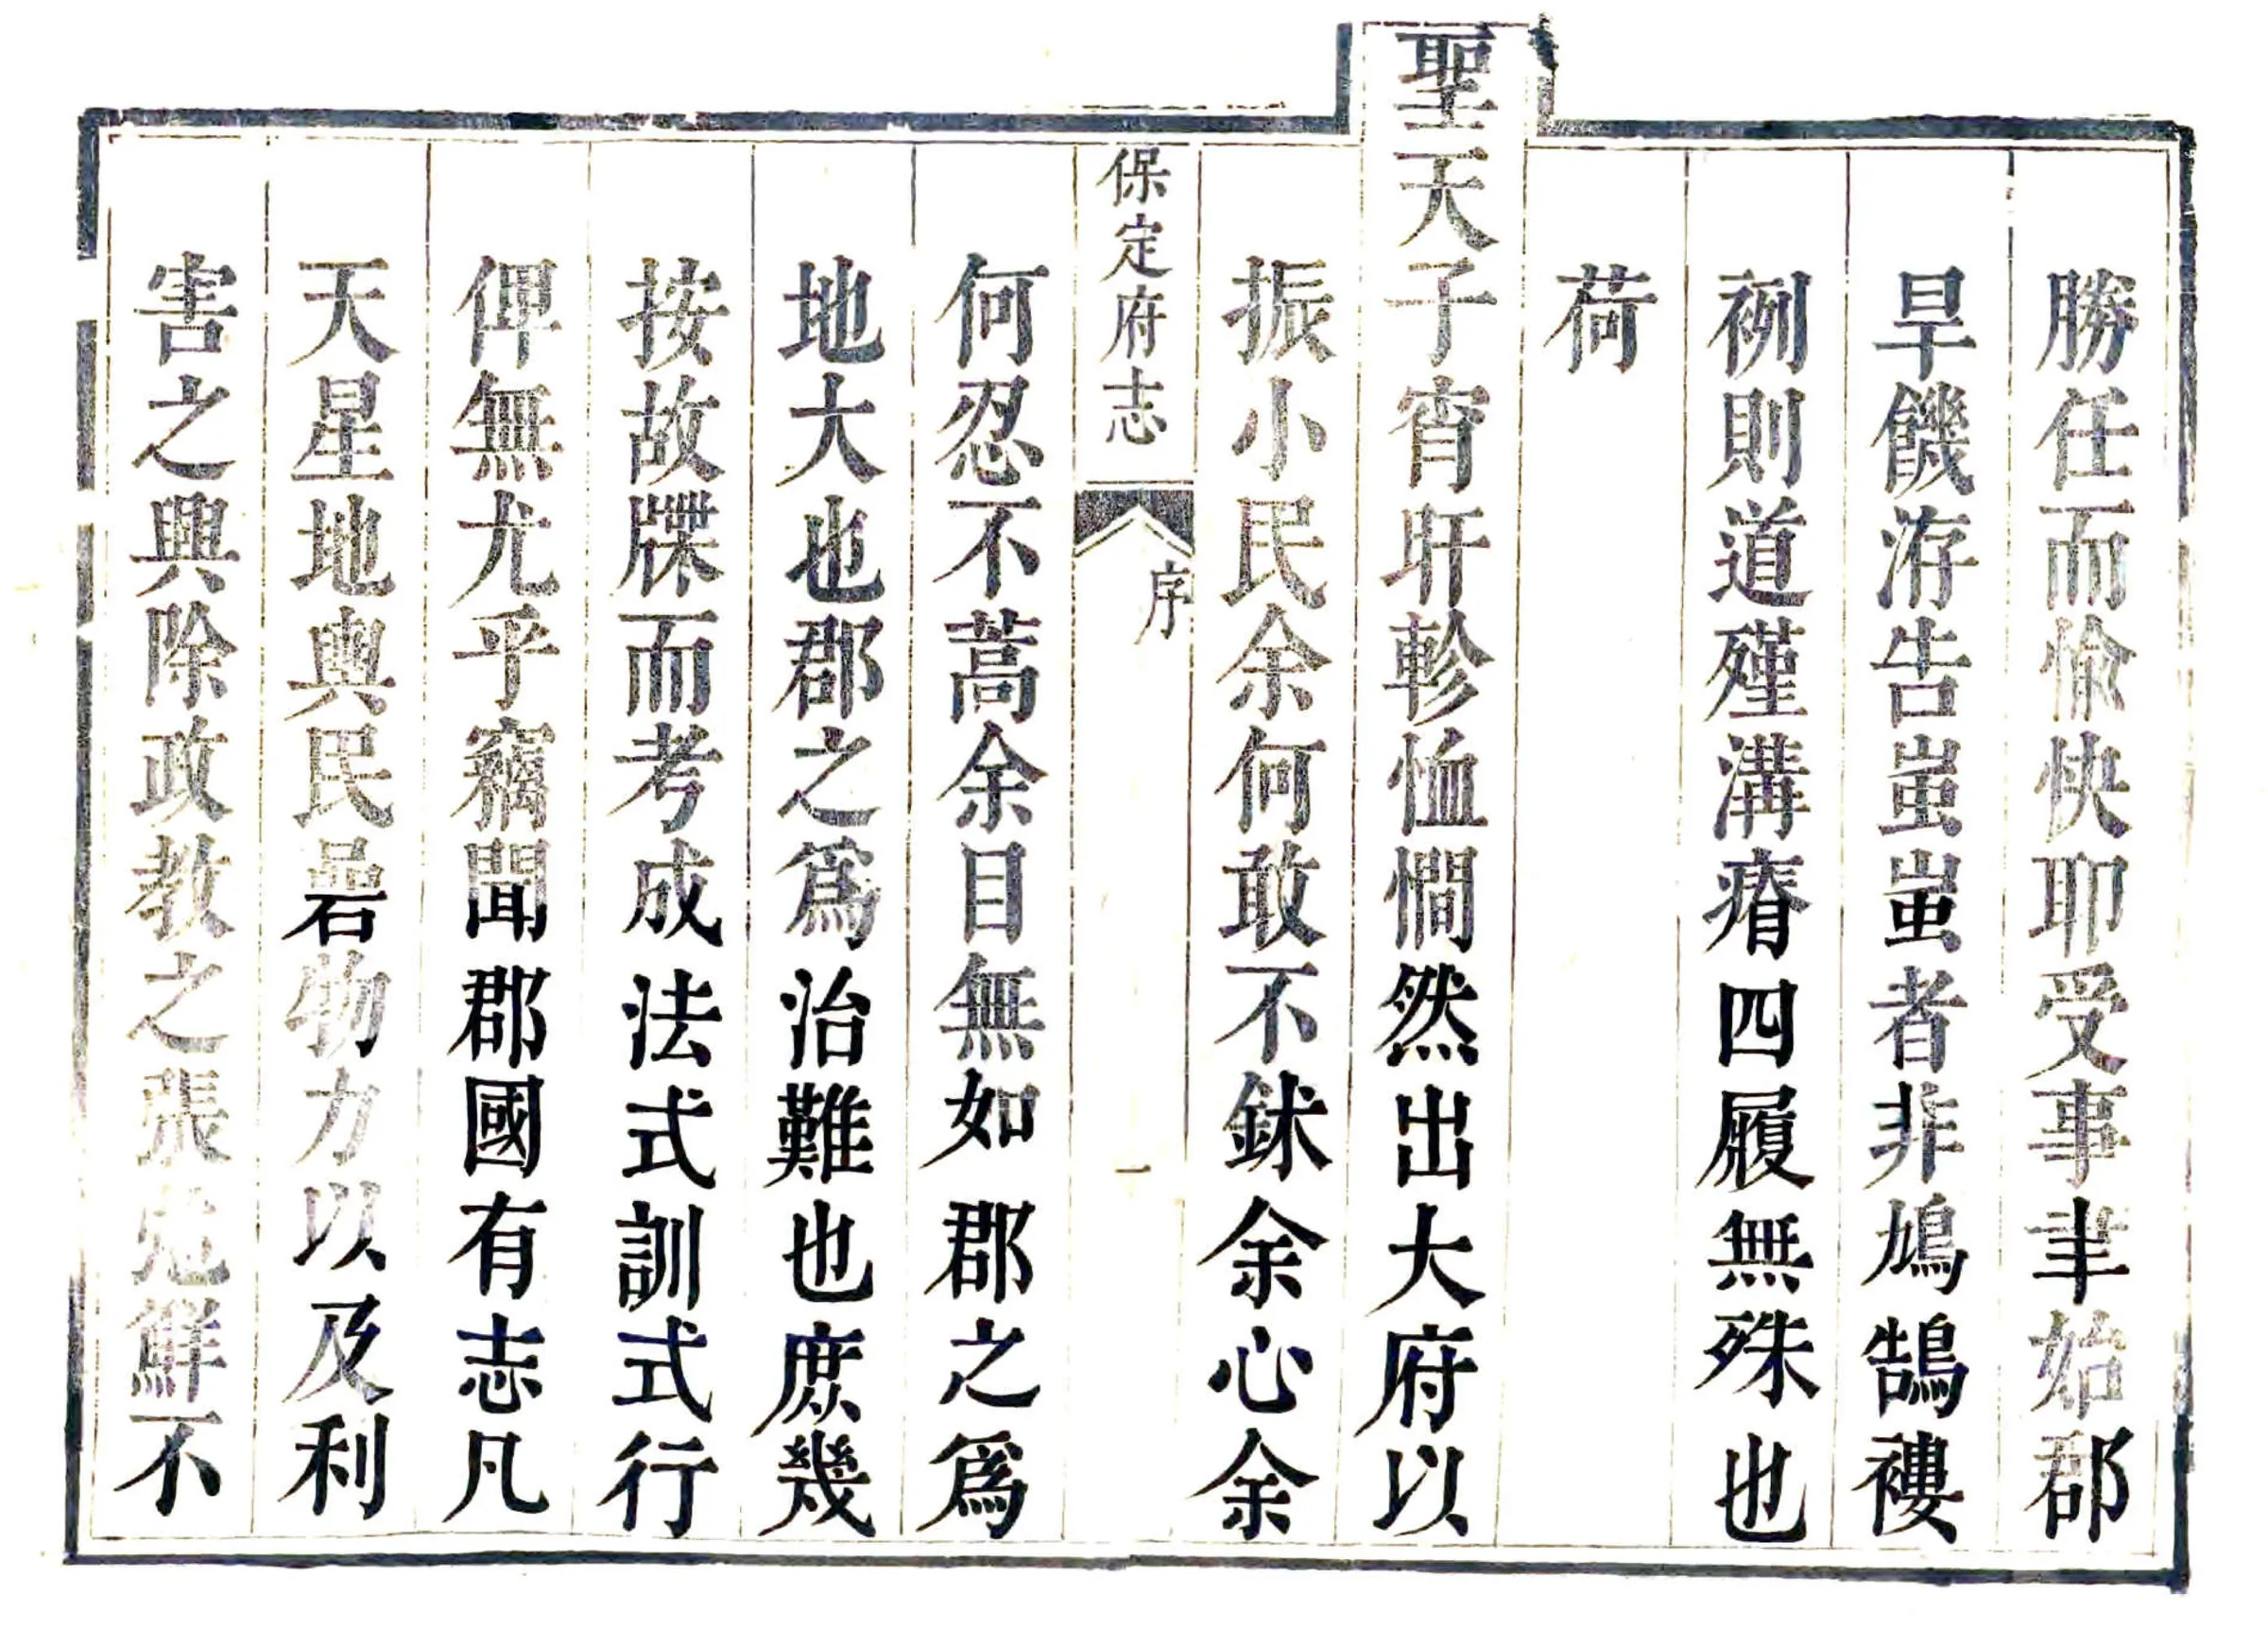 勝任而愉快耶受事聿始郡
旱饑洊告蚩蚩者非鳩鵠褸
裂則道殣溝瘠四履無殊也
荷
聖天子宵旰軫恤憪然出大府以
振小民余何敢不鉥余心余
保定府志 序 一
何忍不蒿余目無如郡之爲
地大也郡之爲治難也庶幾
按故牒而考成法式訓式行
俾無尤乎竊聞郡國有志凡
天星地輿民碞物力以及利
害之興除政教之張弛鮮不